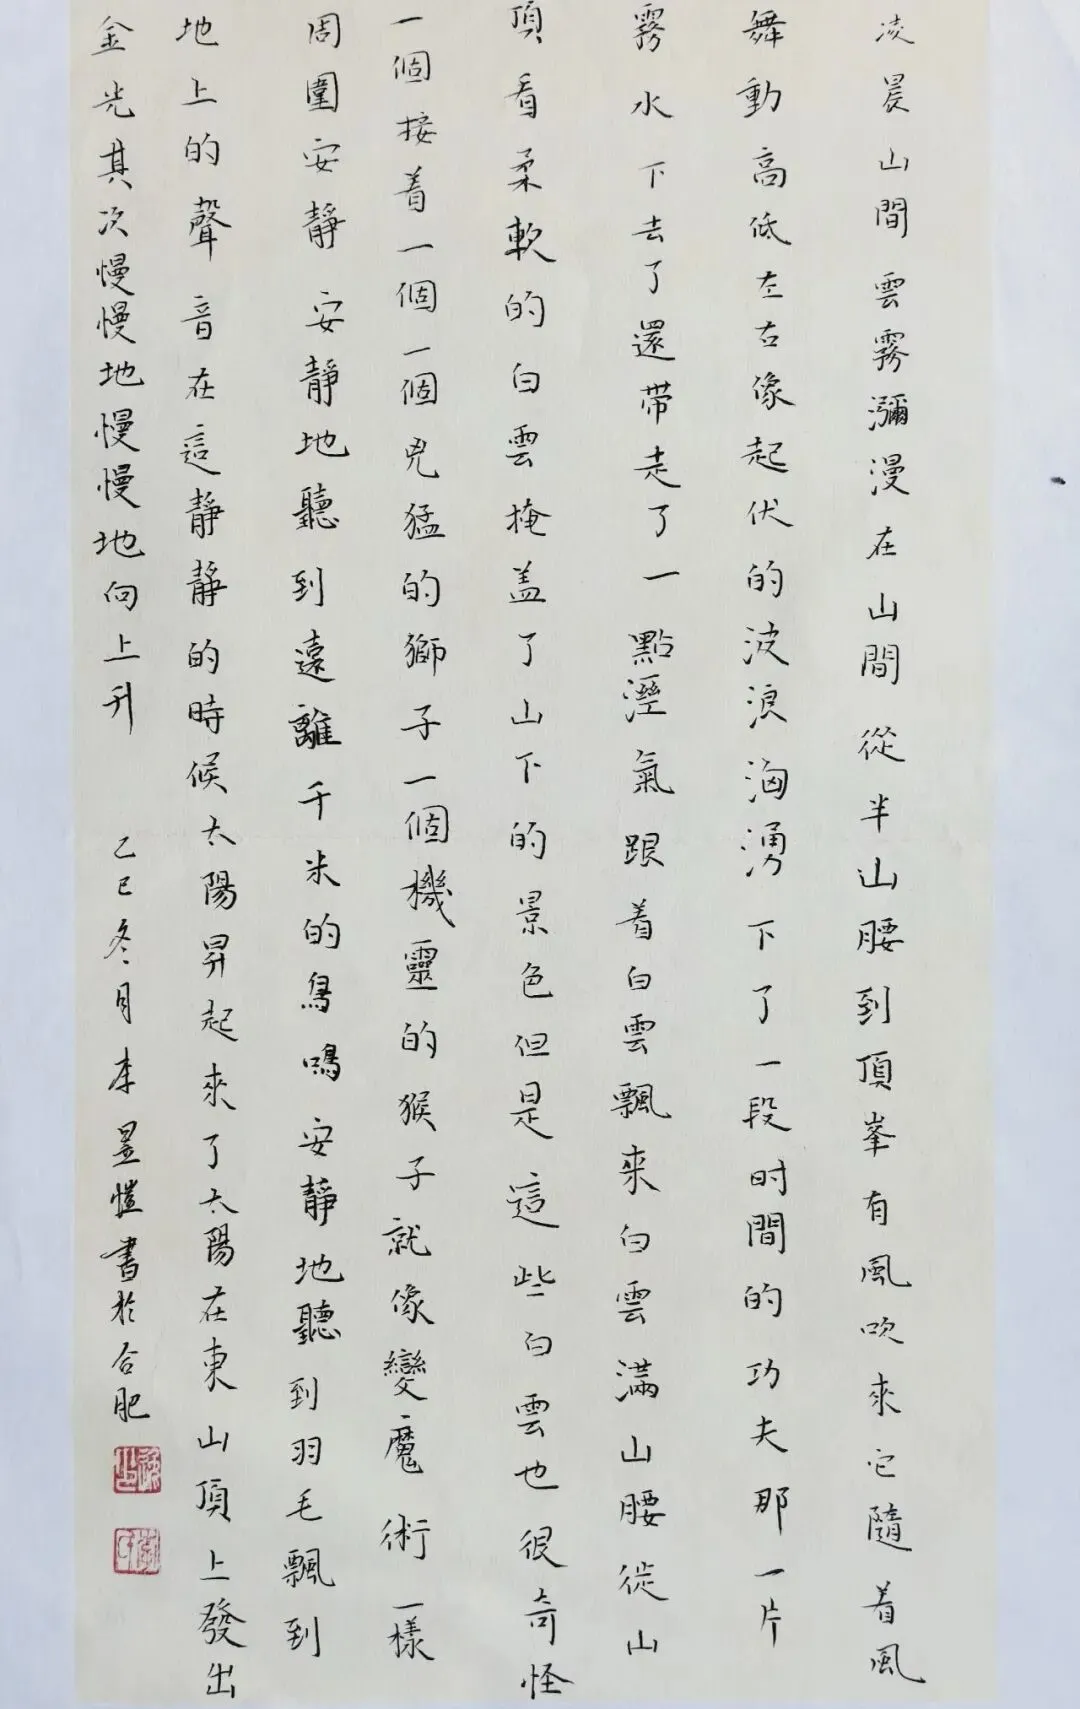 凌晨山間雲霧瀰漫在山間從半山腰到頂峯有風吹來它隨着風
舞動高低左右像起伏的波浪洶湧下了一段时間的功夫那一片
霧水下去了還带走了一點溼氣跟着白雲飄来白雲满山腰從山
頂看柔軟的白雲掩盖了山下的景色但是這些白雲也很奇怪
一個接着一個一個兇猛的獅子一個機靈的猴子就像變魔術一樣
周圍安靜安靜地聽到遠離千米的鳥鳴安靜地聽到羽毛飄到
地上的聲音在這静静的時候太陽昇起来了太陽在東山頂上發出
金光其次慢慢地慢慢地向上升
乙巳冬月李昱愷書於合肥